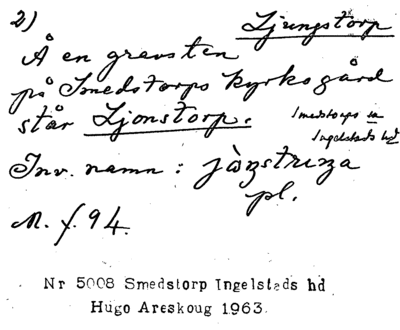 2) Ljungstorp
Å en gravsten
på Smedstorps kyrkogård
står Ljonstorp.
Smedstorps sn
Ingelstads hd
Inv. namn:
pl.
M. f. 94.
Nr 5008 Smedstorp Ingelstads hd
Hugo Areskoug 1963.